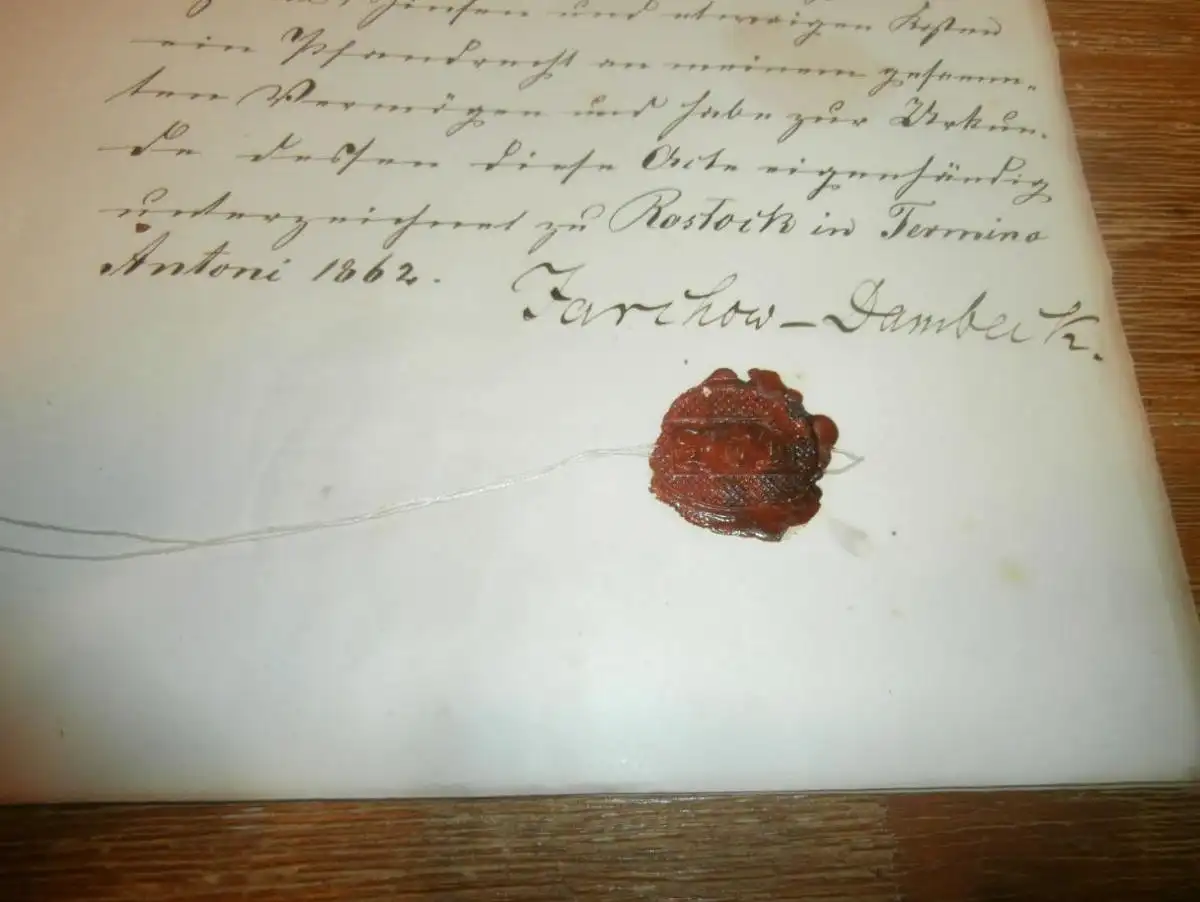 Zinsen und etwaigen Kosten
ein Pfandrecht an meinem gesamm-
ten Vermögen und habe zur Urkun-
de dessen diese Acte eigenhändig
unterzeichnet zu Rostock in Termino
Antoni 1862.
Jarchow-Dambeck.